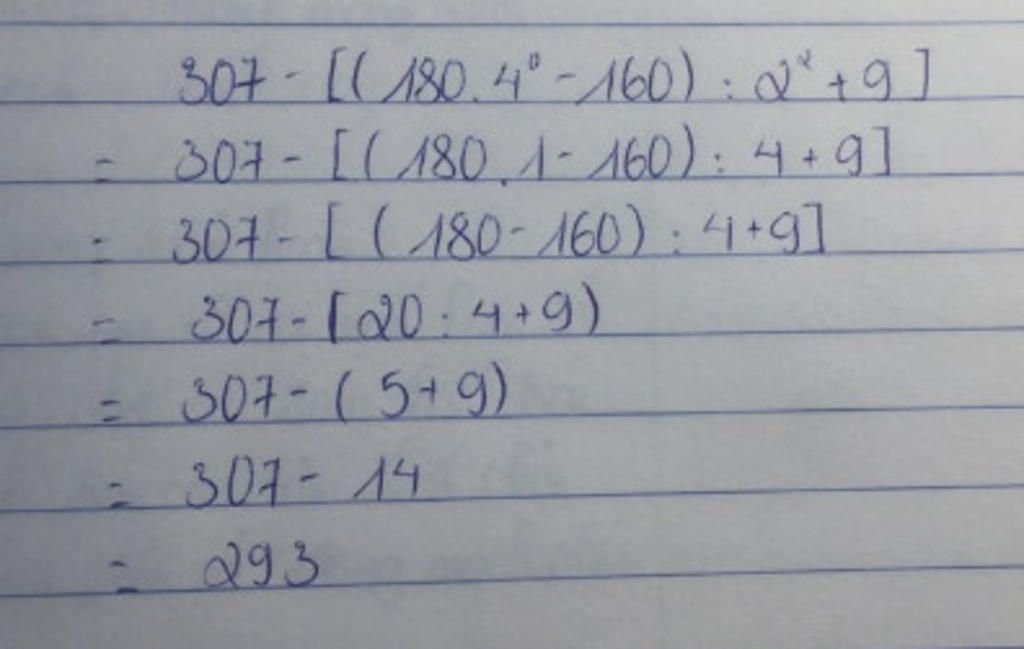 307 - [(180.4⁰ - 160) : 2² + 9]
= 307 - [(180.1 - 160) : 4 + 9]
= 307 - [(180 - 160) : 4 + 9]
= 307 - [20 : 4 + 9)
= 307 - (5 + 9)
= 307 - 14
= 293